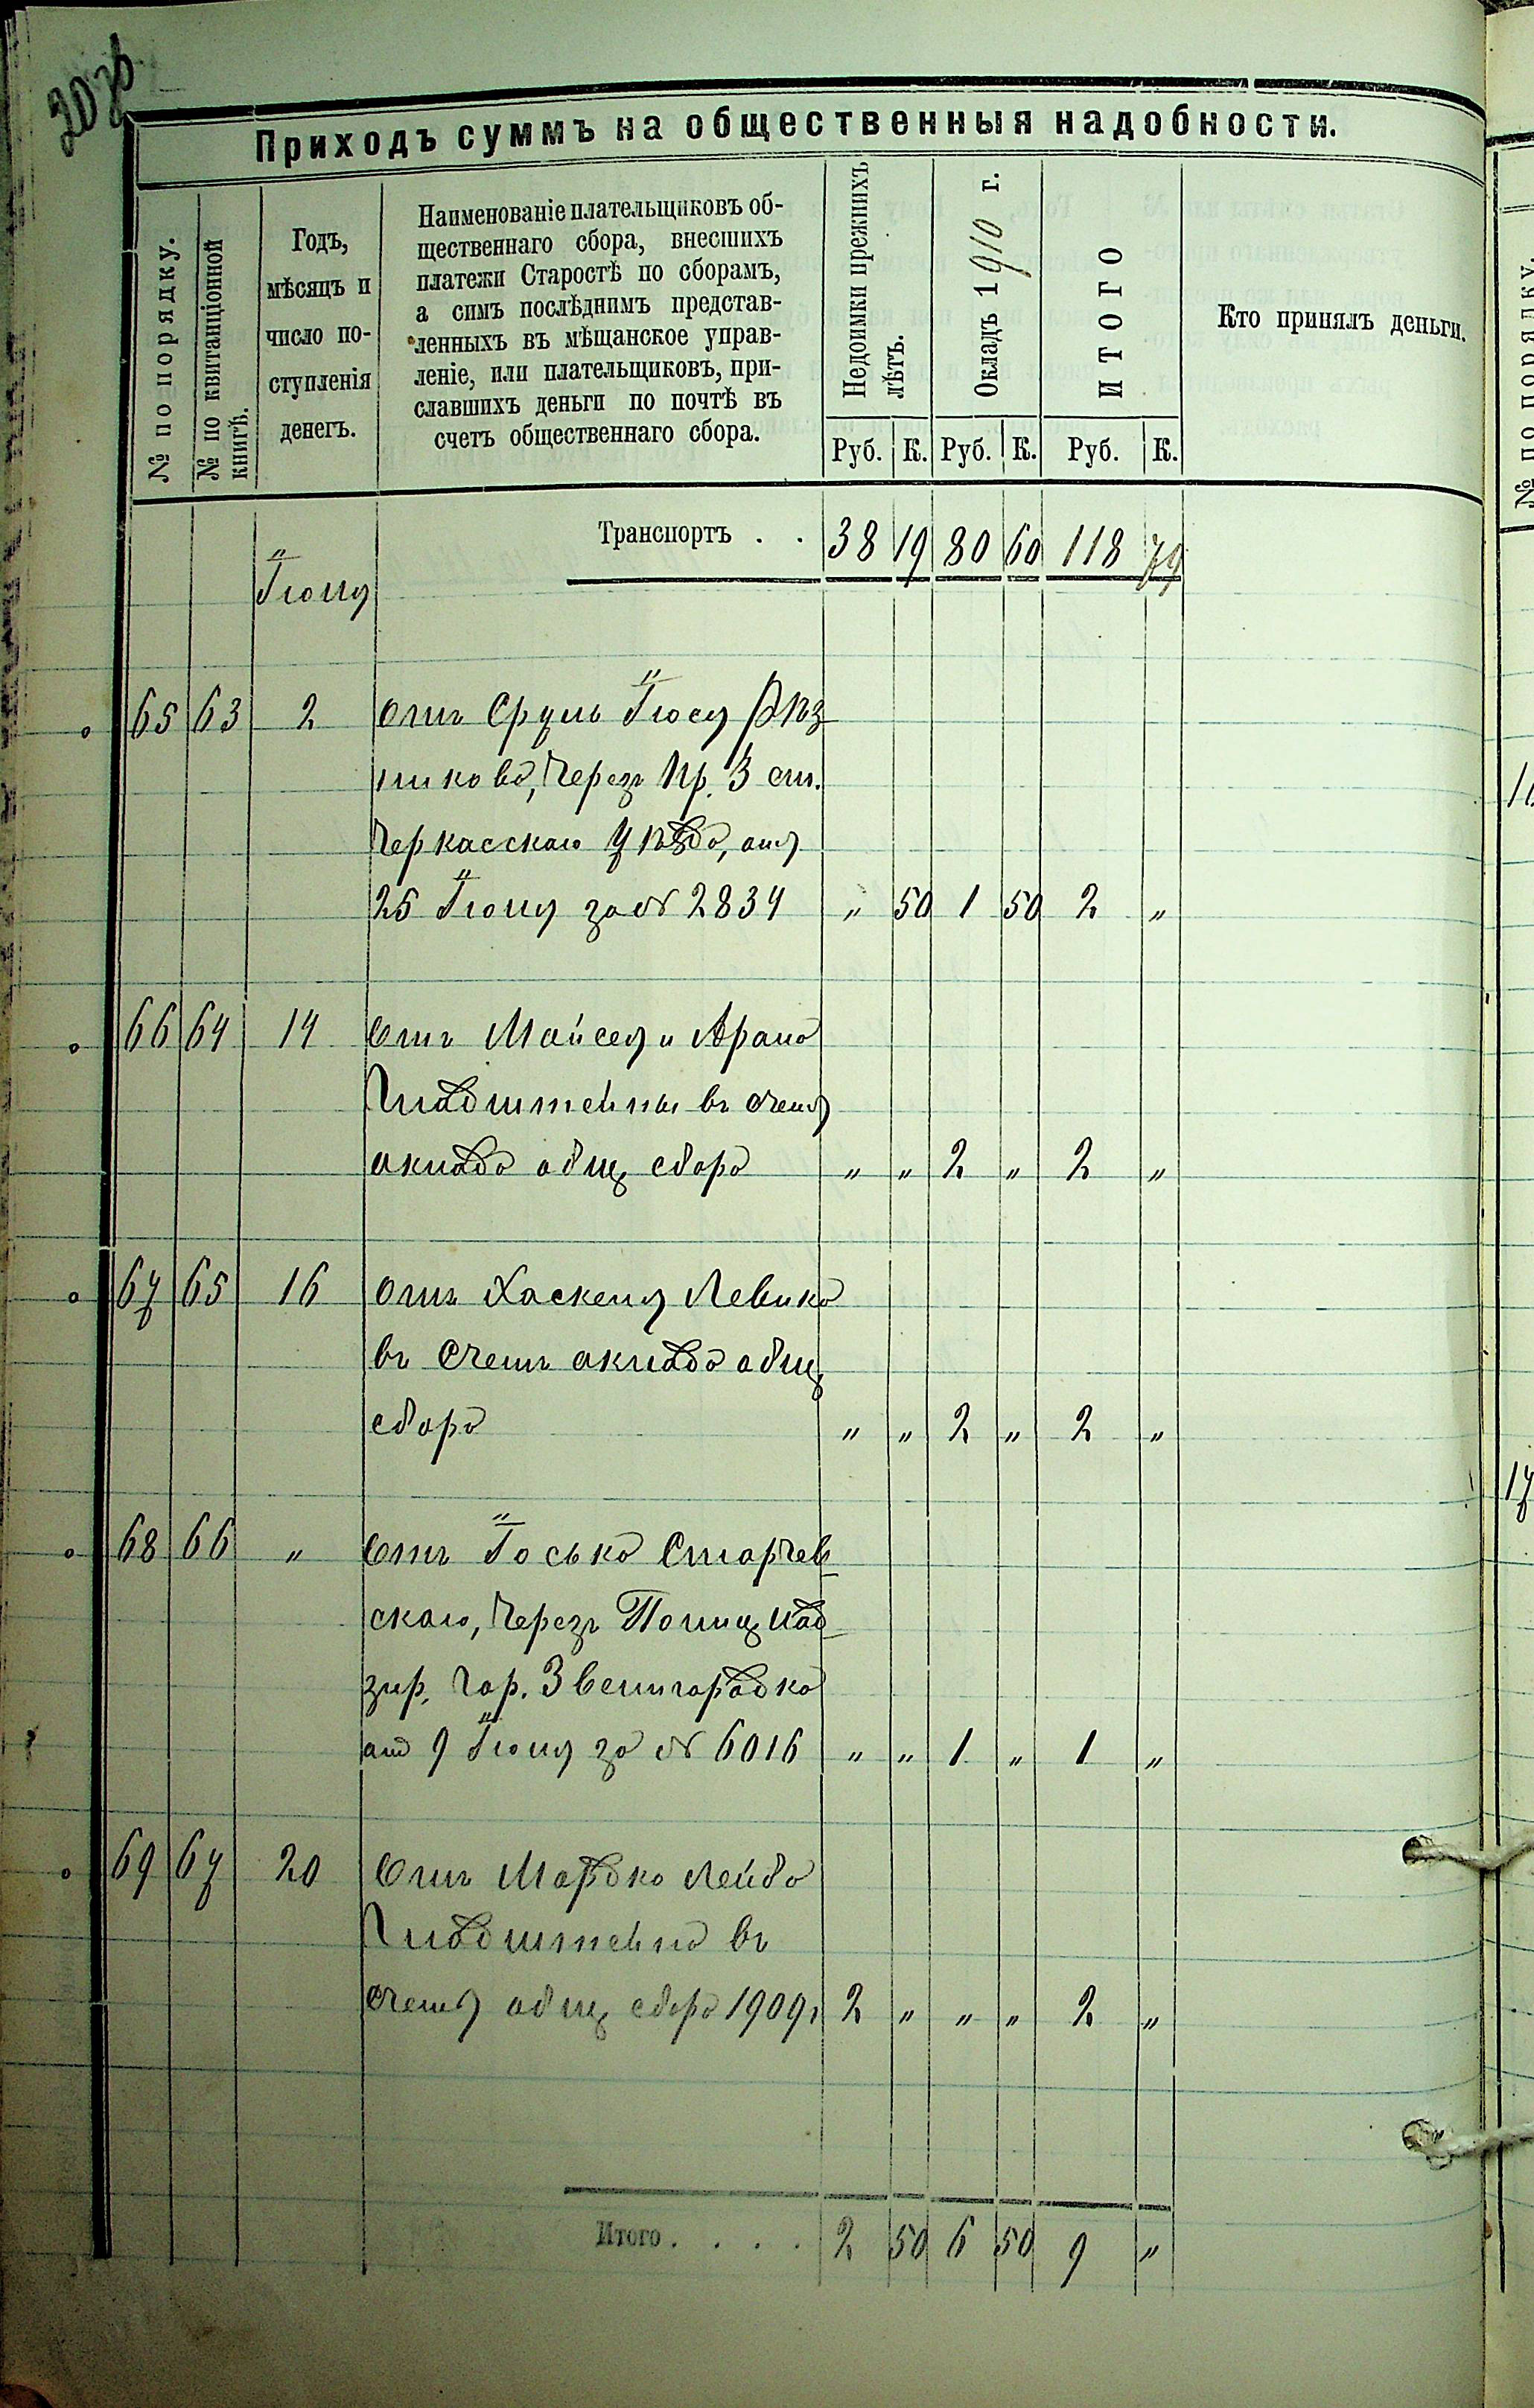 Приходъ суммъ на общественныя надобности.
№ по порядку.
№ по квитанціонной книгѣ.
Годъ,
мѣсяцъ и
число по-
ступленія
денегъ.
Наименованіе плательщиковъ об-
щественнаго сбора, внесшихъ
платежи Старостѣ по сборамъ,
а симъ послѣднимъ представ-
ленныхъ въ мѣщанское управ-
леніе, или плательщиковъ, при-
славшихъ деньги по почтѣ въ
счетъ общественнаго сбора.
Недоимки прежнихъ лѣтъ.
Окладъ 1910 г.
ИТОГО
Кто принялъ деньги.
Руб. К. Руб. К. Руб. К.
Транспортъ . . 38 19 80 60 118 79
Іюля
65 63 2 Отъ Сруль Іося Рѣз
никова, Черезъ Пр. 3 ст.
Черкасскаго уѣзда, отъ
25 Іюня за № 2834 " 50 1 50 2 "
66 64 14 Отъ Мойсея и Арана
Гладштейны въ счетъ
оклада общ сбора " " 2 " 2 "
67 65 16 Отъ Хаскеля Левика
въ счетъ оклада общ
сбора " " 2 " 2 "
68 66 " Отъ Іоська Старчев
скаго, Черезъ Полиц Над
зир. гор. Звенигородка
от 9 Іюля за № 6016 " " 1 " 1 "
69 67 20 Отъ Мордко Лейба
Гладштейна въ
счетъ общ сбора 1909 г 2 " " " 2 "
Итого . . . . 2 50 6 50 9 "
№ по порядку.